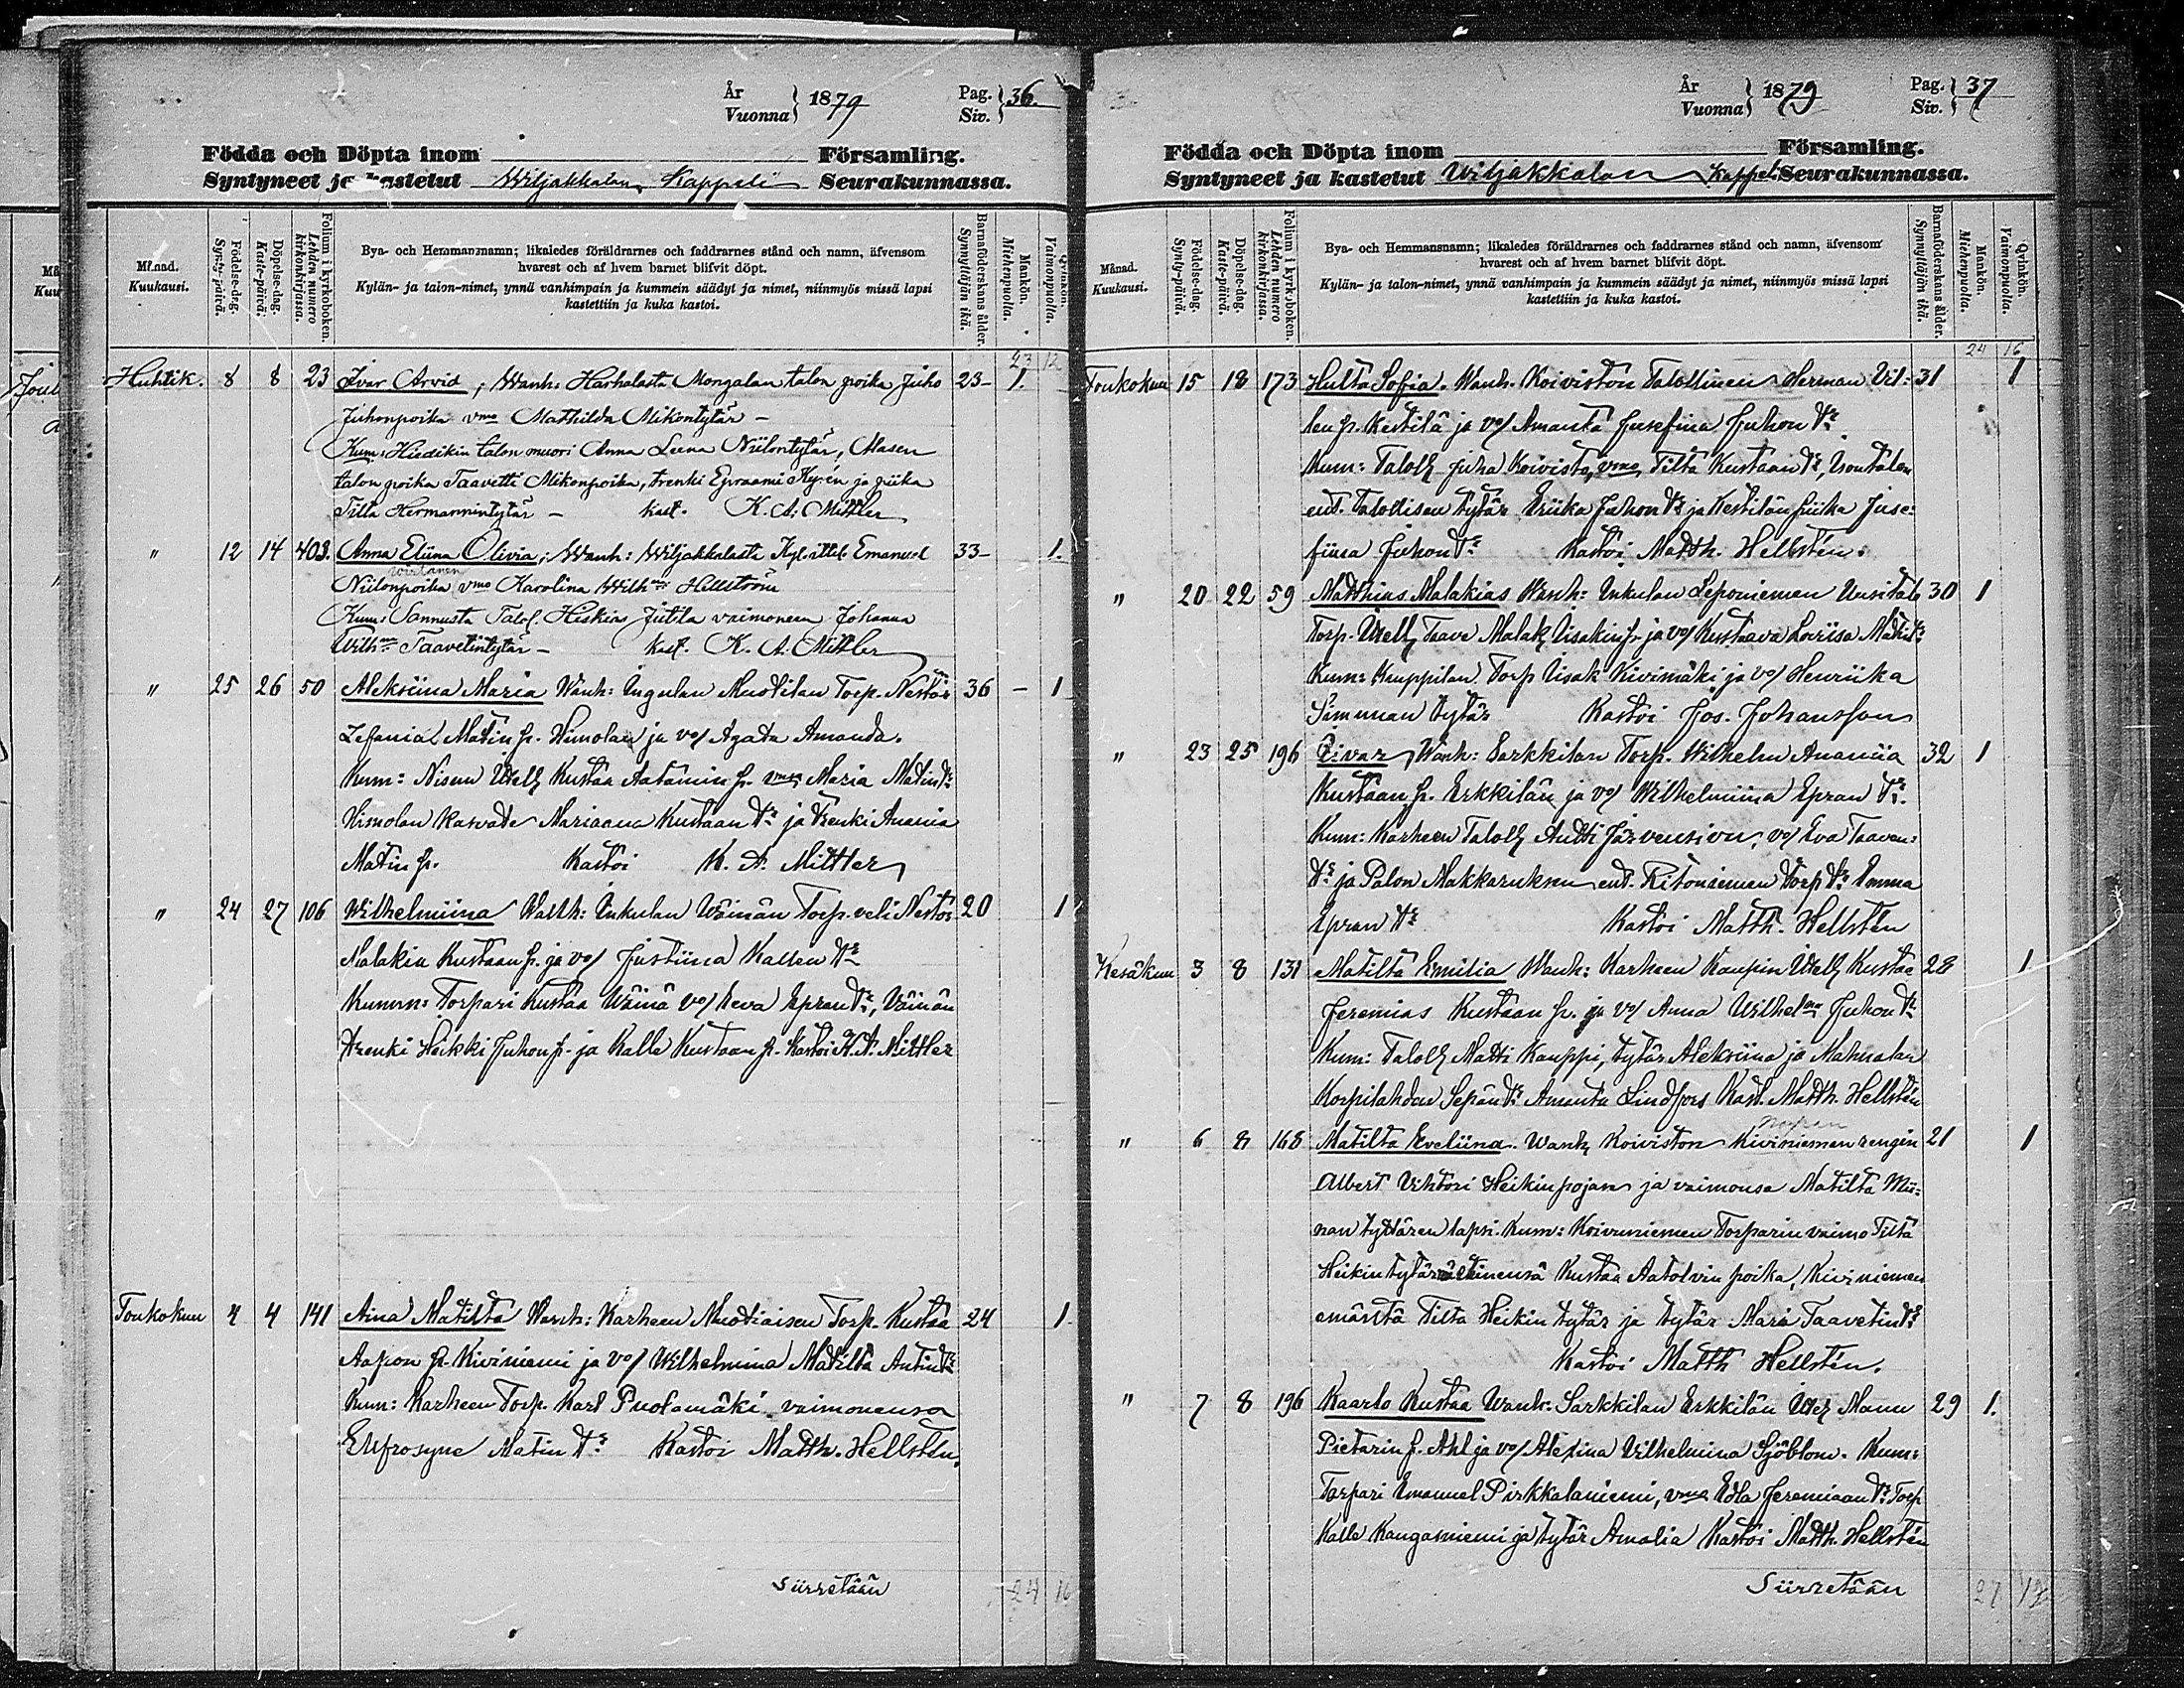 År
Vuonna } 1879 Pag.
Siv. } 36.
Födda och Döpta inom Församling.
Syntyneet ja kastetut Wiljakkalan Kappeli Seurakunnassa.
Månad.
Kuukausi.
Födelse-dag.
Synty-päivä.
Döpelse-dag.
Kaste-päivä.
Folium i kyrkoboken.
Lehden numero
kirkonkirjassa.
Bya- och Hemmansnamn; likaledes föräldrarnes och faddrarnes stånd och namn, äfvensom
hvarest och af hvem barnet blifvit döpt.
Kylän- ja talon-nimet, ynnä vanhimpain ja kummein säädyt ja nimet, niinmyös missä lapsi
kastettiin ja kuka kastoi.
Barnaföderskans ålder.
Synnyttäjän ikä.
Mankön.
Miehenpuolia.
Qvinkön.
Vaimonpuolia.
23 12
Huhtik. 8 8 23 Ivar Arvid, Wanh: Harhalasta Mongalan talon poika Juho 23- 1.
Juhonpoika vmo Mathilda Mikontytär -
Kum: Hiedikin talon muori Anna Leena Niilontytär, Alasen
talon poika Taavetti Mikonpoika, trenki Epraami Kyrén ja piika
Tilta Hermannintytär - kast. K. A. Mittler
" 12 14 403. Anna Eliina Olivia; Wanh: Wiljakkalasta Emanuel 33- 1.
Wirtanen
Niilonpoika vmo Karolina Wilhna Hellström
Kum: Sannusta Talol. Hiskias Jutila vaimonean Johanna
Wilhna Taavetintytär - kast. K. A. Mittler
" 25 26 50 Aleksiina Maria Wanh: Ingulan Muotilan Torp. Nestor 36 - 1
Zefania Matin p. Himolan ja vo/ Agata Amanda.
Kum: Nisun Itell Kustaa Aatamin p. vmo Maria Matin tr
Himolan kasvatti Mariaana Kustaan tr ja trenki Anania
Matin p. Kastoi K. A. Mittler
" 24 27 106 Wilhelmiina Wanh: Inkulan Wäinän Torp. veli Nestor 20 1
Malakia Kustaan p. ja vo/ Justiina Kallen tr
Kumm: Torpari Kustaa Wäinä vo/ Eeva Epran tr, Väinän
trenki Heikki Juhon p. ja Kalle Kustaan p. Kastoi K. A. Mittler
Toukokuu 4 4 141 Aina Matilta Wanh: Karheen Muotiaisen Torp. Kustaa 24 1.
Aapon p. Kiviniemi ja vo/ Wilhelmina Matilta Antin tr
Kum: Karheen Torp. Karl Puolamäki vaimonensa
Eufrosyne Matin tr Kastoi Matth. Hellstén.
Siirretään 24 16
År
Vuonna } 1879 Pag.
Siv. } 37
Födda och Döpta inom Församling.
Syntyneet ja kastetut Wiljakkalan Kappeli Seurakunnassa.
Månad.
Kuukausi.
Födelse-dag.
Synty-päivä.
Döpelse-dag.
Kaste-päivä.
Folium i kyrkoboken.
Lehden numero
kirkonkirjassa.
Bya- och Hemmansnamn; likaledes föräldrarnes och faddrarnes stånd och namn, äfvensom
hvarest och af hvem barnet blifvit döpt.
Kylän- ja talon-nimet, ynnä vanhimpain ja kummein säädyt ja nimet, niinmyös missä lapsi
kastettiin ja kuka kastoi.
Barnaföderskans ålder.
Synnyttäjän ikä.
Mankön.
Miehenpuolia.
Qvinkön.
Vaimonpuolia.
24 16
Toukokuu 15 18 173 Hulta Sofia. Wanh. Koiviston Talollinen Herman Vil- 31 1
len p. Kestilä ja vo/ Amanta Jusefina Juhon tr
Kum: Taloll Juha Koivisto, vmo Tilta Kustaan tr, Isontalon
ent. talollisen tytär Eriika Juhon tr ja Kestilän piika Juse-
fiina Juhon tr Kastoi Matth. Hellstén.
" 20 22 59 Matthias Malakias Wanh: Inkulan Leponiemen Uusitalo 30 1
Torp. Itell Taave Malak Iisakin p. ja vo/ Kustaava Loviisa Matin tr
Kum: Kauppilan Torp Iisak Kivimäki ja vo/ Henriika
Simunan tytär Kastoi Jos. Johansson
" 23 25 196 Eivar Wanh: Sarkkilan Torp. Wilhelm Ananiia 32 1
Kustaan p. Erkkilän ja vo/ Wilhelmiina Epran tr.
Kum: Karheen Taloll Antti Järvensivu, vo/ Eva Taaven-
tr ja Palon Makkaruksen ent. Ritoniemen Torp tr Emma
Epran tr Kastoi Matth. Hellstén
Kesäkuu 3 8 131 Matilta Emilia Wanh: Karheen Kaupin Itell Kustaa 28 1
Jeremias Kustaan p. ja vo/ Anna Wilhelma Juhon tr
Kum: Taloll Matti Kauppi, tytär Aleksiina ja Mahnalan
Korpilahden Sepän tr Amanta Lindfors Kast. Matth. Hellstén
" 6 8 168 Matilta Eveliina. Wanh Koiviston Kiviniemen rengin 21 1
Albert Vihtori Heikinpojan ja vaimonsa Matilta Mii-
nan tyttären lapsi. Kum: Koivuniemen Torparin vaimo Tilta
Heikintytär Kustaa Aatolvin poika, Kiviniemen
emäntä Tilta Heikin tytär ja tytär Maria Taavetin tr
Kastoi Matth Hellstén.
" 7 8 196 Kaarlo Kustaa Wanh: Sarkkilan Erkkilän Itell Manu 29 1.
Pietarin p. Ahl ja vo/ Alexina Vilhelmina Sjöblom. Kum:
Torpari Emanuel Pirkkalaniemi, vmo Edla Jeremiaan tr Torp
Kalle Kangasniemi ja tytär Amalia Kastoi Matth. Hellstén
Siirretään 27